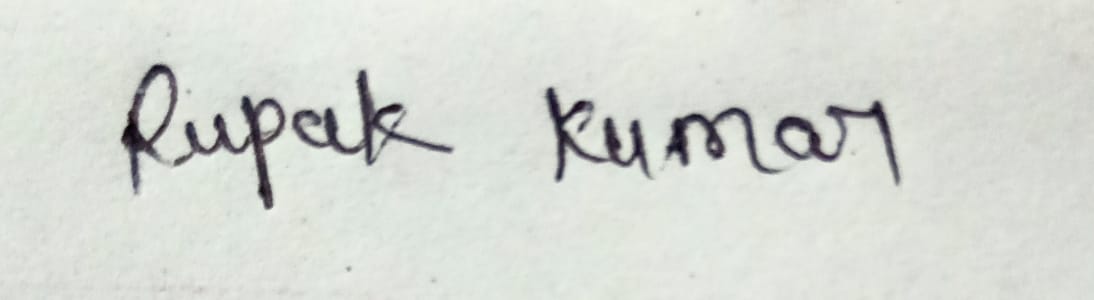 Rupak Kumar